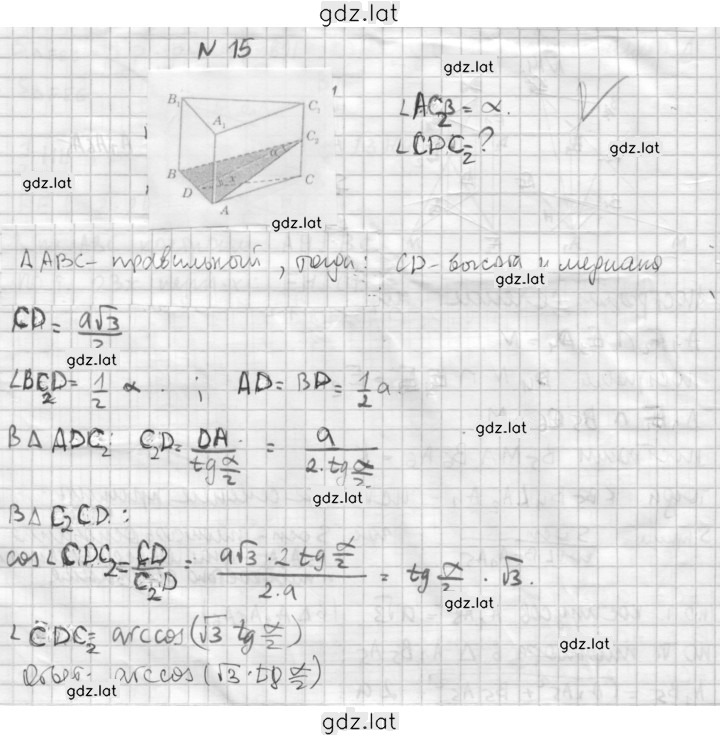 gdz.lat
N 15
gdz.lat
B₁ C₁ A₁ C₂ α B D x C A
∠AC₂B = α.
∠CDC₂ = ?
gdz.lat
gdz.lat
gdz.lat
△ABC - правильный, тогда: CD - высота и медиана
gdz.lat
CD = a√3/2
gdz.lat
∠BC₂D = 1/2 α. ; AD = BD = 1/2 a.
gdz.lat
В △ ADC₂: C₂D = DA/tg α/2 = a/2·tg α/2
gdz.lat
В △ C₂CD:
cos∠CDC₂ = CD/C₂D = a√3·2 tg α/2 / 2·a = tg α/2 · √3.
gdz.lat
∠CDC₂ = arccos(√3 tg α/2)
gdz.lat
Ответ: arccos(√3·tg α/2)
gdz.lat
gdz.lat